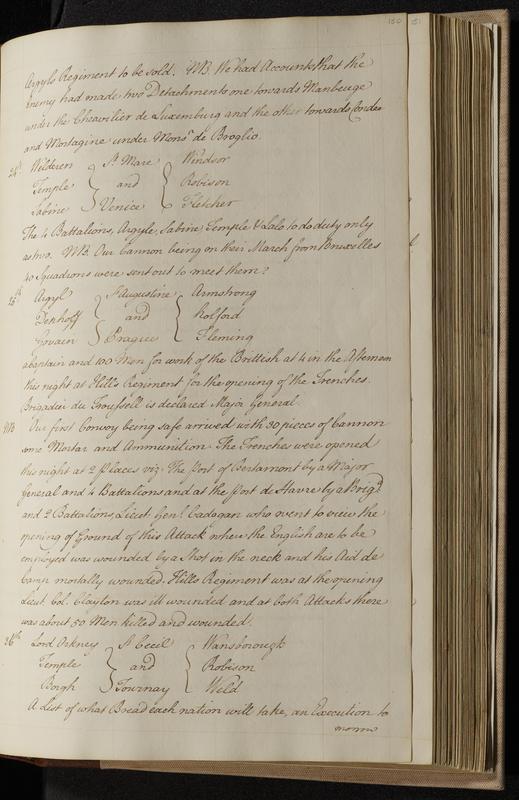 150 151
Argyls Regiment to be sold. NB. We had Accounts that the
Enemy had made two Detachments one towards Manbeuge
under the Chevarlier de Luxemburg and the other towards Conde
and Mortagine under Monsr de Broglio.
24th Welderen St Mare Windsor
Temple and Robison
Sabine Venice Fletcher
The 4 Battalions, Argyle, Sabine, Temple & Lalo to do duty only
as two. NB. Our Cannon being on their March from Bruxelles
40 Squadrons were sent out to meet them.
25th Argyl St Augustine Armstrong
Dekhoff and Holford
Govain Pragúe Fleming
a Captain and 100 Men for work of the Brittish at 4 in the Afternoon
this night at Hill's Regiment for the opening of the Trenches.
Brigadier du Troussell is declared Major General.
NB Our first Convoy being safe arrived with 30 pieces of Cannon
some Mortar and Ammunition. The Trenches were opened
this night at 2 places viz. The Port of Bertamont by a Major
General and 4 Battalions and at the Port de Havre by a Brigd.
and 2 Battalions, Lieut. Genl. Cadogan who went to view the
opening of Ground of this Attack where the English are to be
employed was wounded by a Shot in the neck and his Aid de
Camp mortally wounded. Hills Regiment was at the opening
Lieut. Col. Clayton was ill wounded and at both Attacks there
was about 50 Men killed and wounded.
26th Lord Orkney St Cecil Wansborough
Temple and Robison
Borgh Tournay Weld
A List of what Bread each nation will take, an Execution to